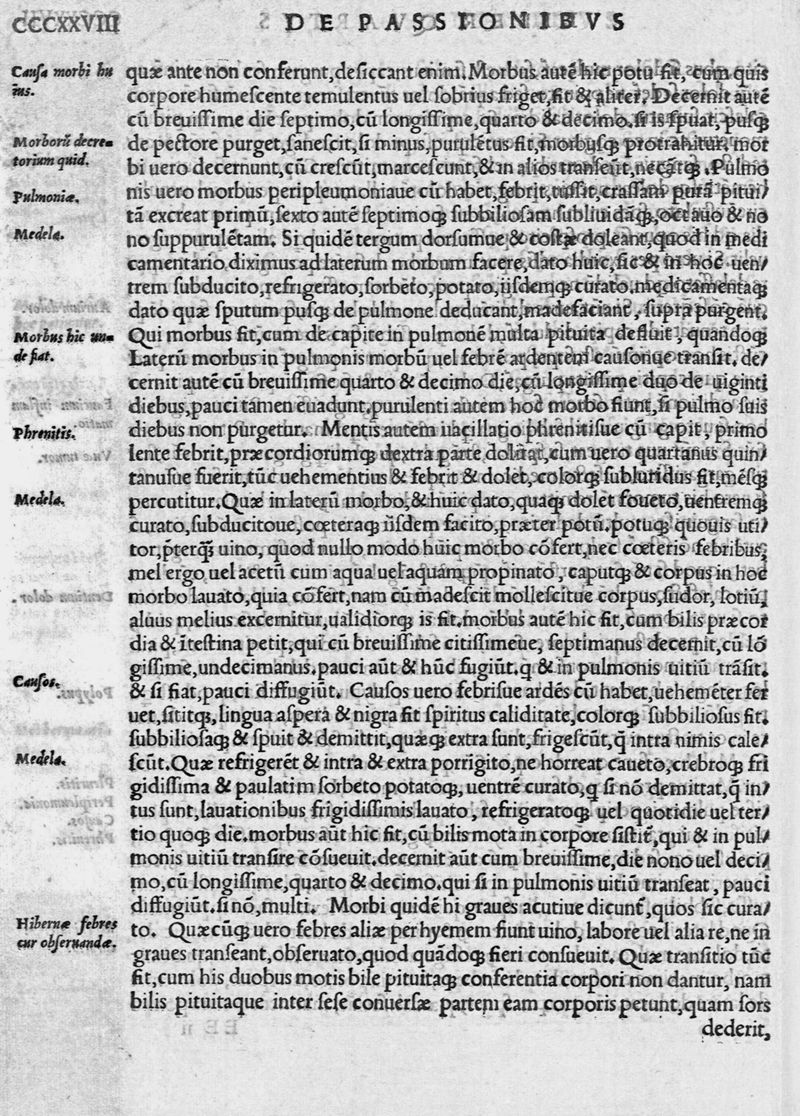 CCCXXVIII DE PASSIONIBVS
Causa morbi hu
ius.
quæ ante non conferunt, desiccant enim. Morbus autē hic potu fit, cum quis
corpore humescente temulentus uel sobrius friget, fit & aliter. Decernit autē
cū breuissime die septimo, cū longissime, quarto & decimo, si is spuat, pusq́
Morborū decre-
torium quid.
de pectore purget, sanescit, si minus, purulētus fit, morbusq́ protrahitur. mor
bi uero decernunt, cū crescūt, marcescunt, & in alios transeūt, necātq́. Pulmo
Pulmoniæ.
nis uero morbus peripleumoniaue cū habet, febrit, tussit, crassam purā pitui/
tā excreat primū, sexto autē septimoq́ subbiliosam subliuidāq́, octauo & no
Medela.
no suppurulētam. Si quidē tergum dorsumue & costæ doleant, quod in medi
camentario diximus ad laterum morbum facere, dato huic, sic & in hoc uen/
trem subducito, refrigerato, sorbeto, potato, iisdemq́ curato. medicamentaq́
dato quæ sputum pusq́ de pulmone deducant, madefaciant, supra purgent.
Morbus hic un-
de fiat.
Qui morbus fit, cum de capite in pulmonē multa pituita defluit, quandoq́
Laterū morbus in pulmonis morbū uel febrē ardentem causonue transit. de/
cernit autē cū breuissime quarto & decimo die, cū longissime duo de uiginti
diebus, pauci tamen euadunt. purulenti autem hoc morbo fiunt, si pulmo suis
Phrenitis.
diebus non purgetur. Mentis autem uacillatio phrenitisue cū capit, primo
lente febrit, præcordiorumq́ dextra parte dolitat, cum uero quartanus quin/
tanusue fuerit, tūc uehementius & febrit & dolet, colorq́ subluridus fit, mēsq́
Medela.
percutitur. Quæ in laterū morbo, & huic dato, quaq́ dolet foueto, uentremq́
curato, subducitoue, cœteraq́ iisdem facito, præter potū. potuq́ quouis uti/
tor, p̄terq̃ uino, quod nullo modo huic morbo cōfert, nec cœteris febribus,
mel ergo uel acetū cum aqua uel aquam propinato, caputq́ & corpus in hoc
morbo lauato, quia cōfert, nam cū madescit mollescitue corpus, sudor, lotiū,
aluus melius excernitur, ualidiorq́ is fit. morbus autē hic fit, cum bilis præcor
dia & ītestina petit, qui cū breuissime citissimeue, septimanus decernit, cū lō
gissime, undecimanus. pauci aūt & hūc fugiūt. q & in pulmonis uitiū trāsit.
Causos.
& si fiat, pauci diffugiūt. Causos uero febrisue ardēs cū habet, uehemēter fer
uet, sititq́, lingua aspera & nigra fit spiritus caliditate, colorq́ subbiliosus fit.
subbiliosaq́ & spuit & demittit, quæq́ extra sunt, frigescūt, q̄ intra nimis cale/
Medela.
scūt. Quæ refrigerēt & intra & extra porrigito, ne horreat caueto, crebroq́ fri
gidissima & paulatim sorbeto potatoq́, uentrē curato, q si nō demittat, q̄ in/
tus sunt, lauationibus frigidissimis lauato, refrigeratoq́ uel quotidie uel ter/
tio quoq́ die. morbus aūt hic fit, cū bilis mota in corpore sistit, qui & in pul/
monis uitiū transire cōsueuit. decernit aūt cum breuissime, die nono uel deci/
mo, cū longissime, quarto & decimo. qui si in pulmonis uitiū transeat, pauci
diffugiūt. si nō, multi. Morbi quidē hi graues acutiue dicunt, quos sic cura/
Hibernæ febres
cur obseruandæ.
to. Quæcūq́ uero febres aliæ per hyemem fiunt uino, labore uel alia re, ne in
graues transeant, obseruato, quod quādoq́ fieri consueuit. Quæ transitio tūc
fit, cum his duobus motis bile pituitaq́ conferentia corpori non dantur, nam
bilis pituitaque inter sese conuersæ partem eam corporis petunt, quam sors
dederit,